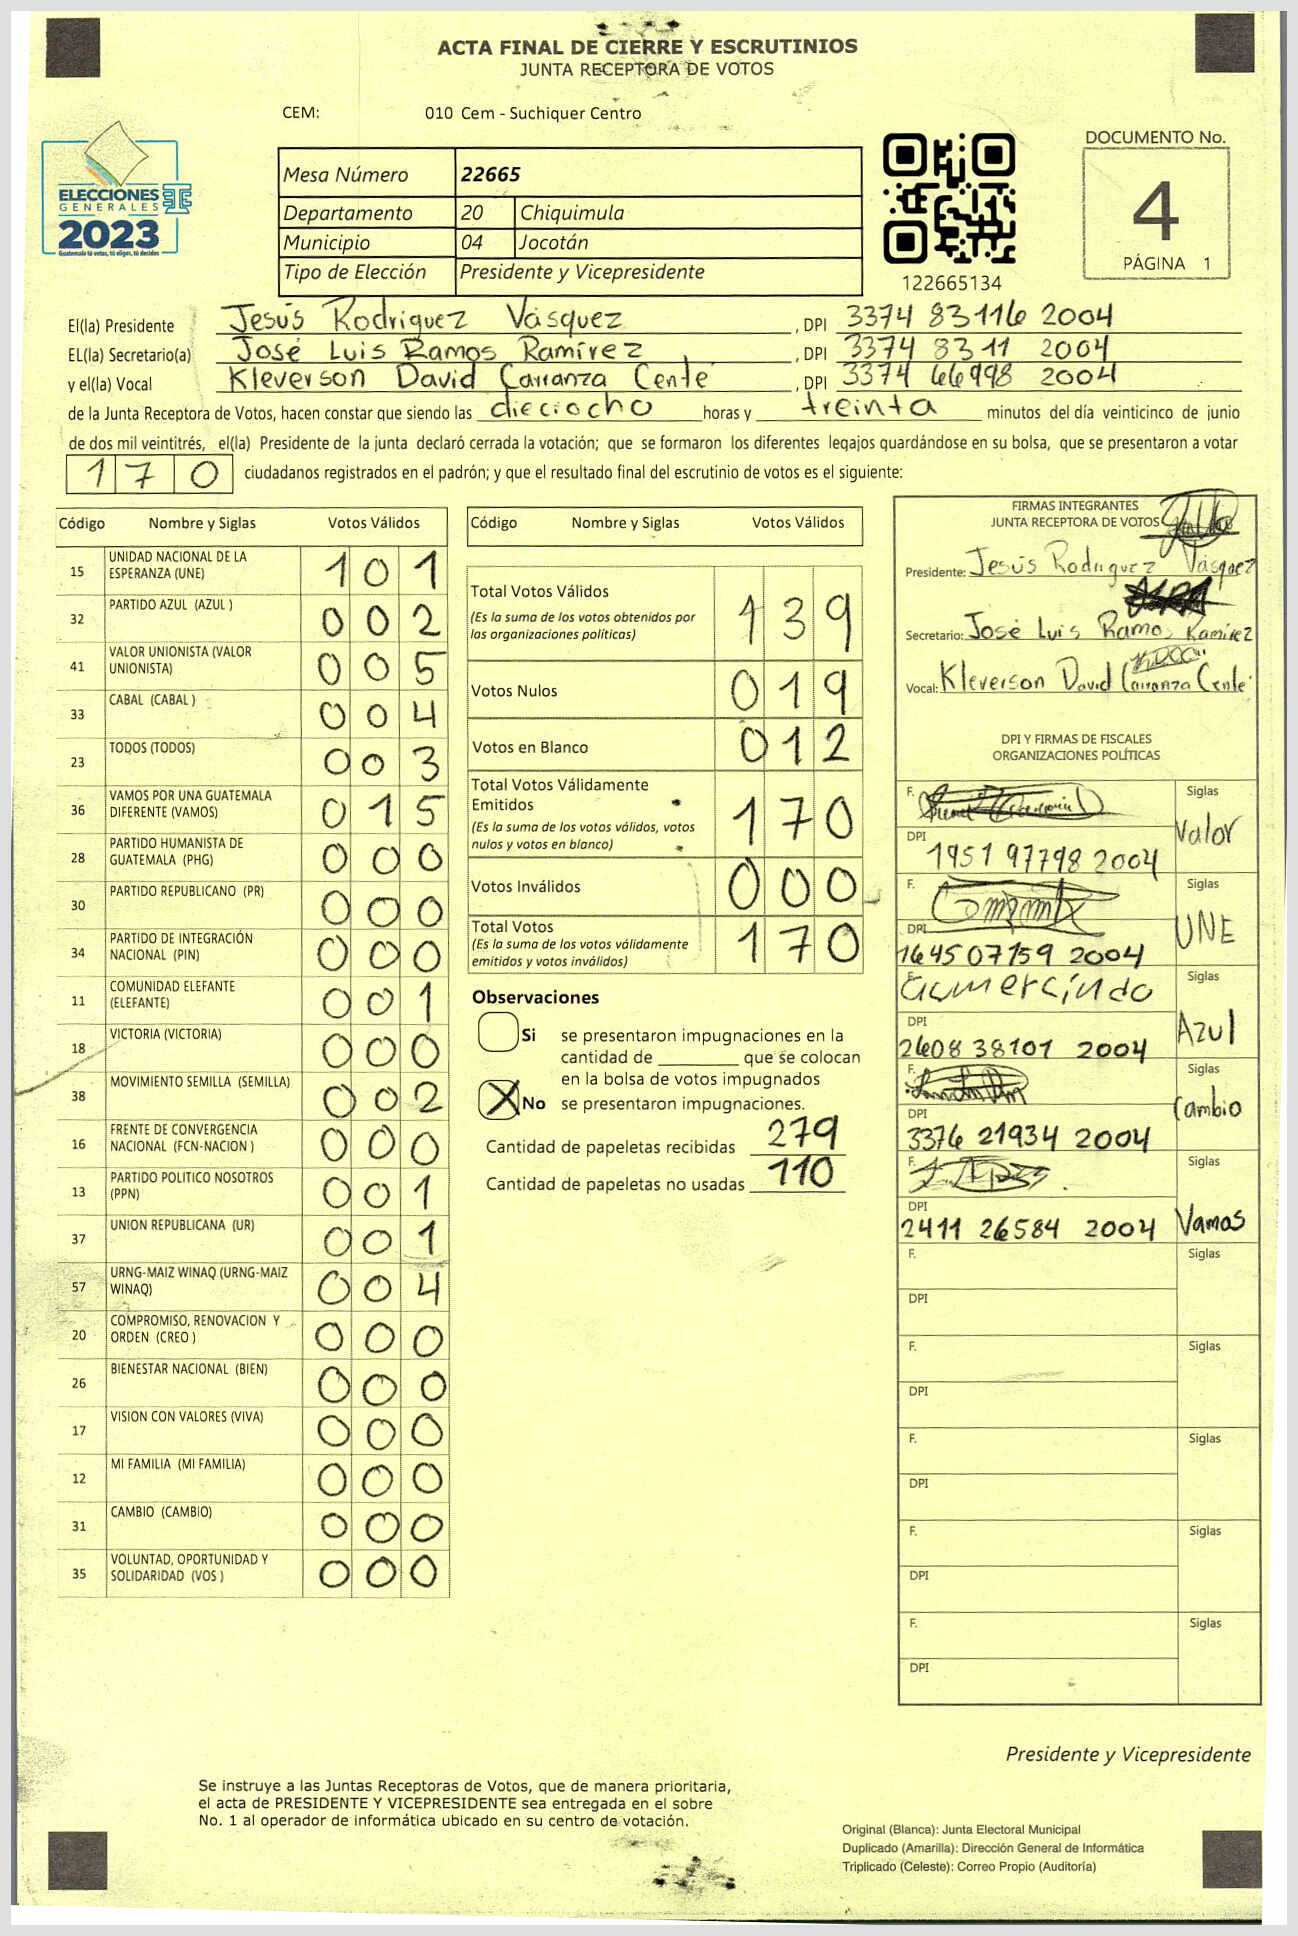 ACTA FINAL DE CIERRE Y ESCRUTINIOS
JUNTA RECEPTORA DE VOTOS
CEM: 010 Cem - Suchiquer Centro
ELECCIONES
GENERALES
2023
Guatemala tú votas, tú eliges, tú decides
Mesa Número 22665
Departamento 20 Chiquimula
Municipio 04 Jocotán
Tipo de Elección Presidente y Vicepresidente
122665134
DOCUMENTO No.
4
PÁGINA 1
El(la) Presidente Jesús Rodriguez Vásquez , DPI 3374 83116 2004
EL(la) Secretario(a) José Luis Ramos Ramírez , DPI 3374 8311 2004
y el(la) Vocal Kleverson David Carranza Centé , DPI 3374 66998 2004
de la Junta Receptora de Votos, hacen constar que siendo las dieciocho horas y treinta minutos del día veinticinco de junio
de dos mil veintitrés, el(la) Presidente de la junta declaró cerrada la votación; que se formaron los diferentes legajos quardándose en su bolsa, que se presentaron a votar
170 ciudadanos registrados en el padrón; y que el resultado final del escrutinio de votos es el siguiente:
Código Nombre y Siglas Votos Válidos
15 UNIDAD NACIONAL DE LA ESPERANZA (UNE) 101
32 PARTIDO AZUL (AZUL ) 002
41 VALOR UNIONISTA (VALOR UNIONISTA) 005
33 CABAL (CABAL ) 004
23 TODOS (TODOS) 003
36 VAMOS POR UNA GUATEMALA DIFERENTE (VAMOS) 015
28 PARTIDO HUMANISTA DE GUATEMALA (PHG) 000
30 PARTIDO REPUBLICANO (PR) 000
34 PARTIDO DE INTEGRACIÓN NACIONAL (PIN) 000
11 COMUNIDAD ELEFANTE (ELEFANTE) 001
18 VICTORIA (VICTORIA) 000
38 MOVIMIENTO SEMILLA (SEMILLA) 002
16 FRENTE DE CONVERGENCIA NACIONAL (FCN-NACION ) 000
13 PARTIDO POLITICO NOSOTROS (PPN) 001
37 UNION REPUBLICANA (UR) 001
57 URNG-MAIZ WINAQ (URNG-MAIZ WINAQ) 004
20 COMPROMISO, RENOVACION Y ORDEN (CREO ) 000
26 BIENESTAR NACIONAL (BIEN) 000
17 VISION CON VALORES (VIVA) 000
12 MI FAMILIA (MI FAMILIA) 000
31 CAMBIO (CAMBIO) 000
35 VOLUNTAD, OPORTUNIDAD Y SOLIDARIDAD (VOS ) 000
Código Nombre y Siglas Votos Válidos
Total Votos Válidos 139
(Es la suma de los votos obtenidos por
las organizaciones políticas)
Votos Nulos 019
Votos en Blanco 012
Total Votos Válidamente
Emitidos 170
(Es la suma de los votos válidos, votos
nulos y votos en blanco)
Votos Inválidos 000
Total Votos 170
(Es la suma de los votos válidamente
emitidos y votos inválidos)
Observaciones
Si se presentaron impugnaciones en la
cantidad de ________ que se colocan
en la bolsa de votos impugnados
X No se presentaron impugnaciones.
Cantidad de papeletas recibidas 279
Cantidad de papeletas no usadas 110
FIRMAS INTEGRANTES
JUNTA RECEPTORA DE VOTOS
Presidente: Jesús Rodriguez Vásquez
Secretario: José Luis Ramos Ramírez
Vocal: Kleverson David Carranza Centé
DPI Y FIRMAS DE FISCALES
ORGANIZACIONES POLÍTICAS
F. Siglas
Valor
DPI 1951 97798 2004
F. Siglas
UNE
DPI 1645 07159 2004
F. Gumercindo Siglas
Azul
DPI 2608 38101 2004
F. Siglas
Cambio
DPI 3376 21934 2004
F. Siglas
Vamos
DPI 2411 26584 2004
F. Siglas
DPI
F. Siglas
DPI
F. Siglas
DPI
F. Siglas
DPI
F. Siglas
DPI
Presidente y Vicepresidente
Se instruye a las Juntas Receptoras de Votos, que de manera prioritaria,
el acta de PRESIDENTE Y VICEPRESIDENTE sea entregada en el sobre
No. 1 al operador de informática ubicado en su centro de votación.
Original (Blanca): Junta Electoral Municipal
Duplicado (Amarilla): Dirección General de Informática
Triplicado (Celeste): Correo Propio (Auditoría)